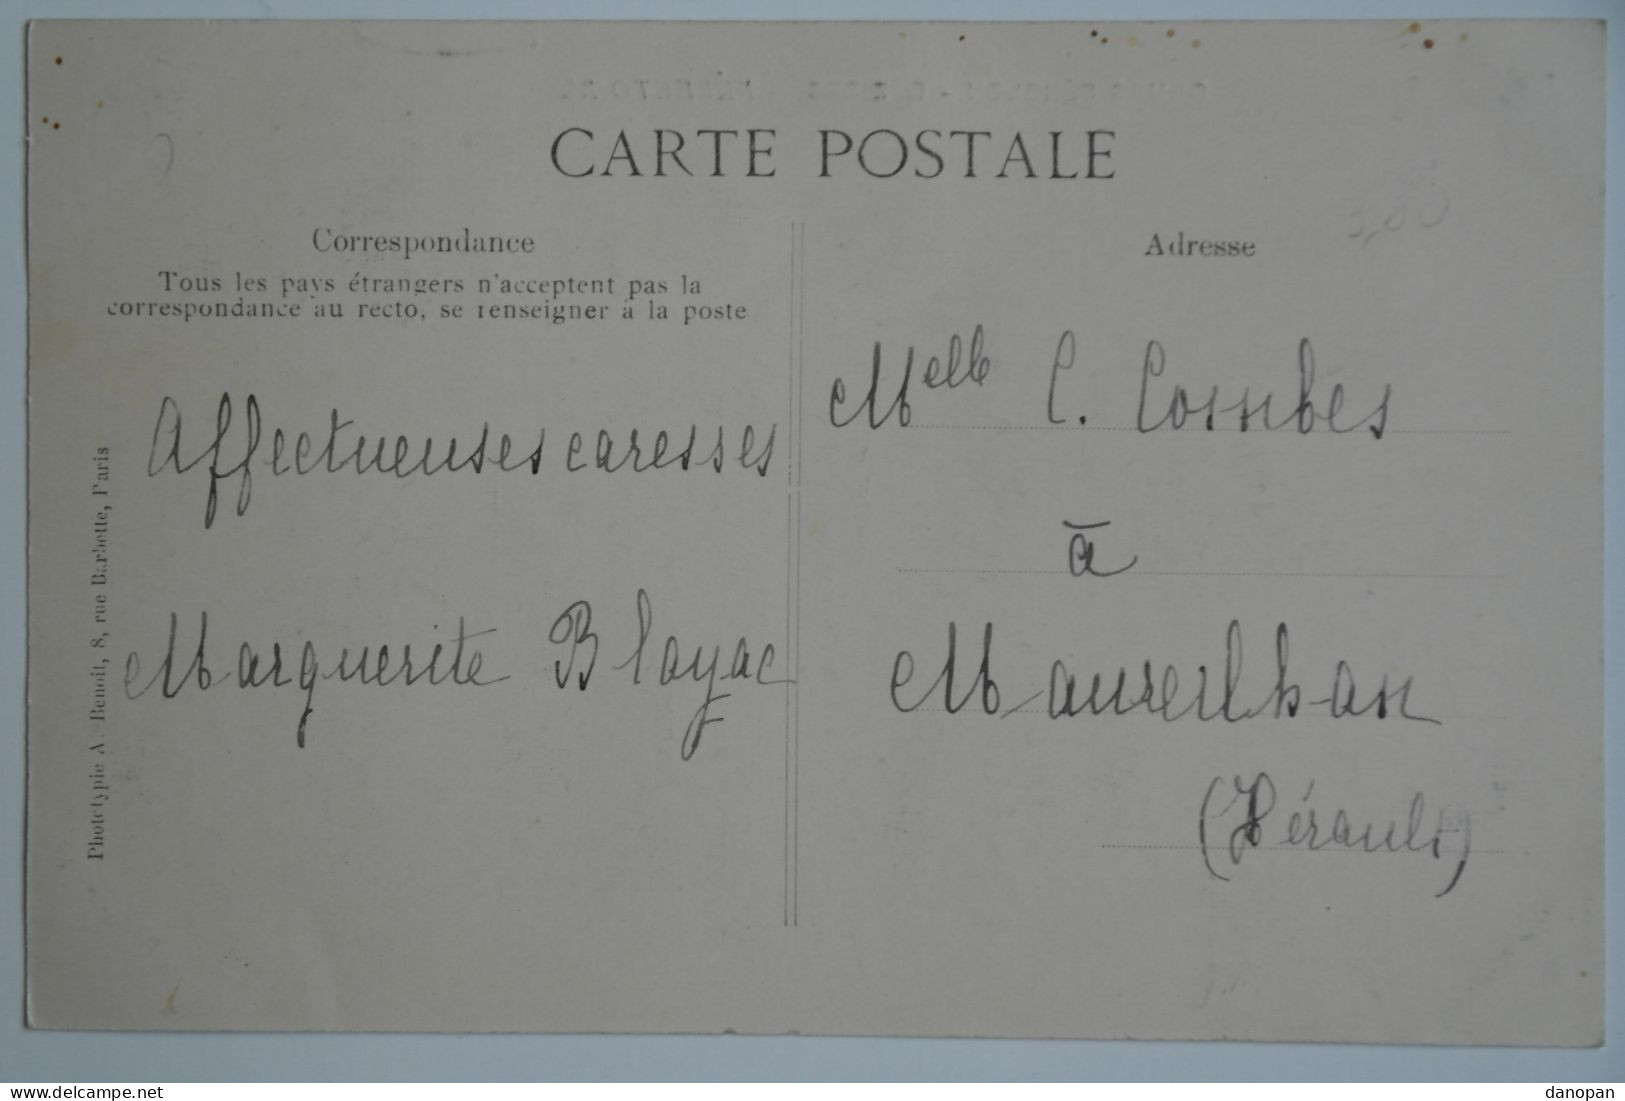 CARTE POSTALE
Correspondance
Tous les pays étrangers n'acceptent pas la
correspondance au recto, se renseigner à la poste
Affectueuses caresses
Marguerite Blayac
Phototypie A. Benoit, 8, rue Barbette, Paris
Adresse
Melle C. Combes
à
Maureilhan
(Hérault)
delcampe.net
danopan